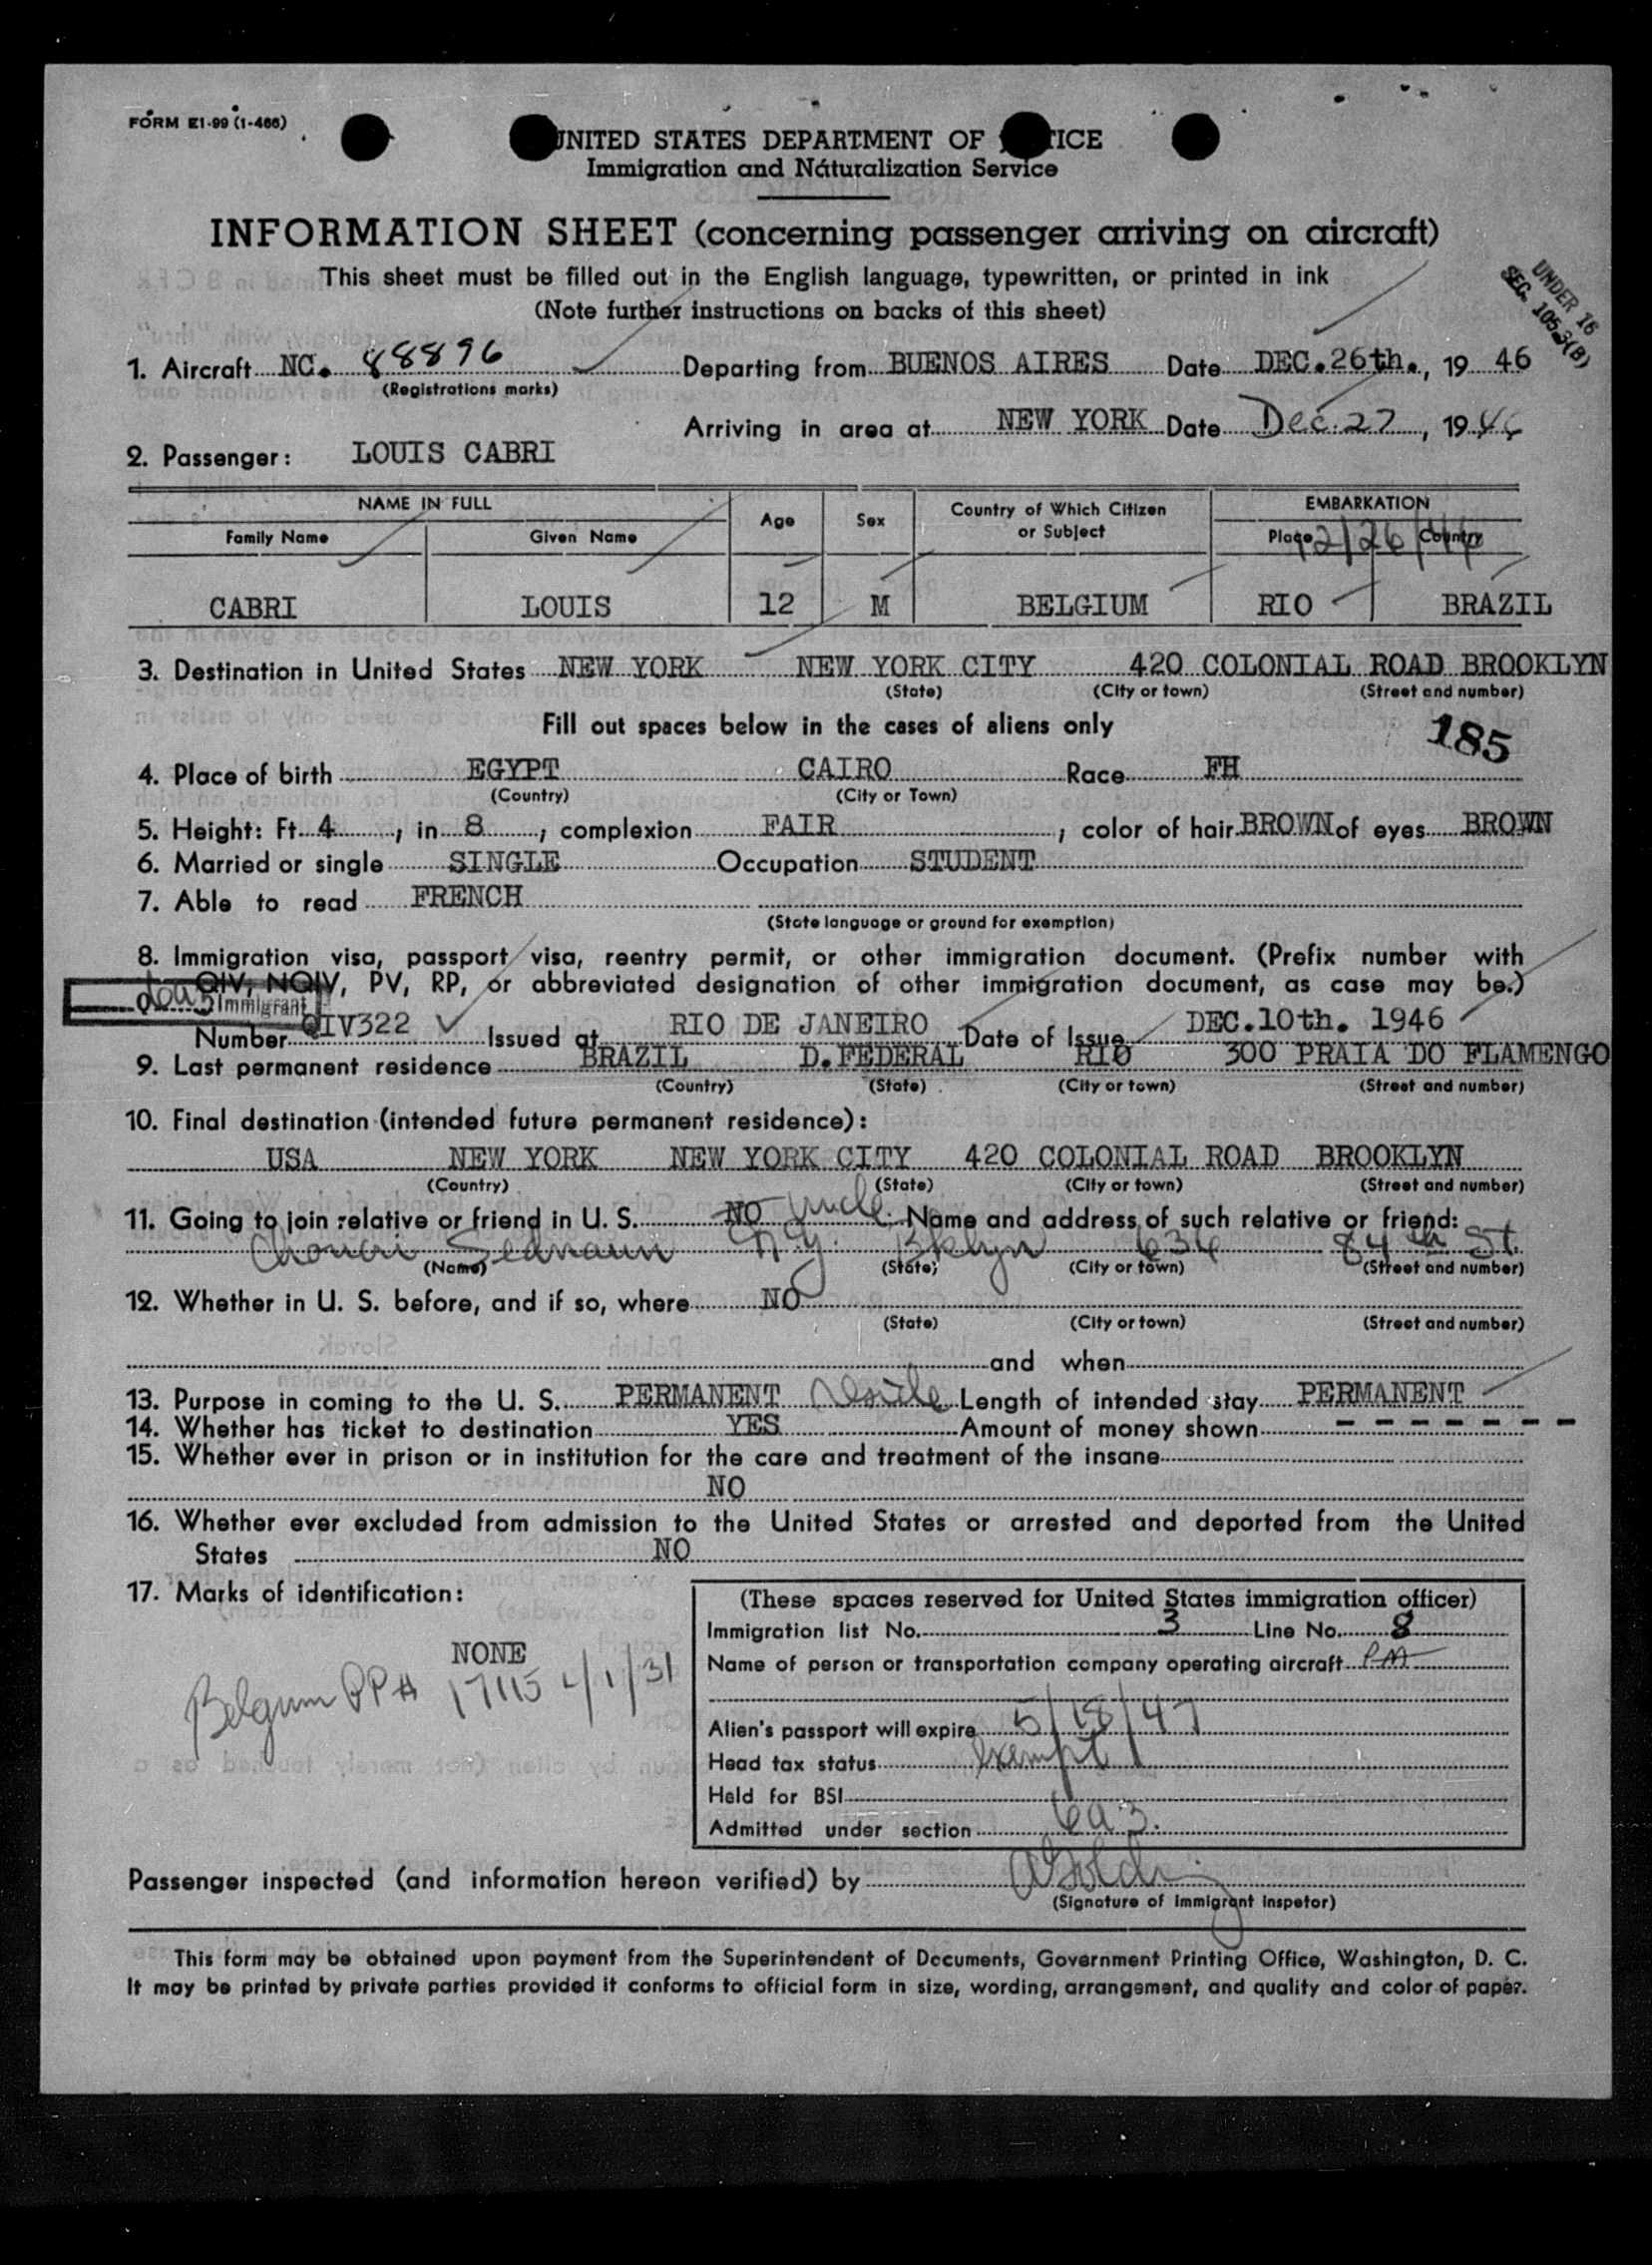 FORM EI-99 (1-466)
UNITED STATES DEPARTMENT OF ICE
Immigration and Naturalization Service
INFORMATION SHEET (concerning passenger arriving on aircraft)
This sheet must be filled out in the English language, typewritten, or printed in ink
(Note further instructions on backs of this sheet)
UNDER 16
SEC. 105.3(B)
1. Aircraft NC. 88896 Departing from BUENOS AIRES Date DEC.26th., 19 46
(Registrations marks)
Arriving in area at NEW YORK Date Dec. 27, 1946
2. Passenger: LOUIS CABRI
NAME IN FULL Age Sex Country of Which Citizen or Subject EMBARKATION
Family Name Given Name Place Country
12/26/46
CABRI LOUIS 12 M BELGIUM RIO BRAZIL
3. Destination in United States NEW YORK NEW YORK CITY 420 COLONIAL ROAD BROOKLYN
(State) (City or town) (Street and number)
Fill out spaces below in the cases of aliens only
185
4. Place of birth EGYPT CAIRO Race FH
(Country) (City or Town)
5. Height: Ft. 4, in 8, complexion FAIR, color of hair BROWN of eyes BROWN
6. Married or single SINGLE Occupation STUDENT
7. Able to read FRENCH
(State language or ground for exemption)
8. Immigration visa, passport visa, reentry permit, or other immigration document. (Prefix number with
QIV, NQIV, PV, RP, or abbreviated designation of other immigration document, as case may be.)
Immigrant
Number QIV322 Issued at RIO DE JANEIRO Date of Issue DEC.10th. 1946
9. Last permanent residence BRAZIL D.FEDERAL RIO 300 PRAIA DO FLAMENGO
(Country) (State) (City or town) (Street and number)
10. Final destination (intended future permanent residence):
USA NEW YORK NEW YORK CITY 420 COLONIAL ROAD BROOKLYN
(Country) (State) (City or town) (Street and number)
11. Going to join relative or friend in U. S. NO Uncle. Name and address of such relative or friend:
N.Y. Bklyn 636 84th St.
(Name) (State) (City or town) (Street and number)
12. Whether in U. S. before, and if so, where NO
(State) (City or town) (Street and number)
and when
13. Purpose in coming to the U. S. PERMANENT reside Length of intended stay PERMANENT
14. Whether has ticket to destination YES Amount of money shown - - - - - - -
15. Whether ever in prison or in institution for the care and treatment of the insane
NO
16. Whether ever excluded from admission to the United States or arrested and deported from the United
States NO
17. Marks of identification:
NONE
Belgium PP# 17115
(These spaces reserved for United States immigration officer)
Immigration list No. 3 Line No. 8
Name of person or transportation company operating aircraft PAA
Alien's passport will expire 5/18/47
Head tax status Exempt
Held for BSI
Admitted under section 6a3.
Passenger inspected (and information hereon verified) by
(Signature of Immigrant Inspetor)
This form may be obtained upon payment from the Superintendent of Documents, Government Printing Office, Washington, D. C.
It may be printed by private parties provided it conforms to official form in size, wording, arrangement, and quality and color of paper.